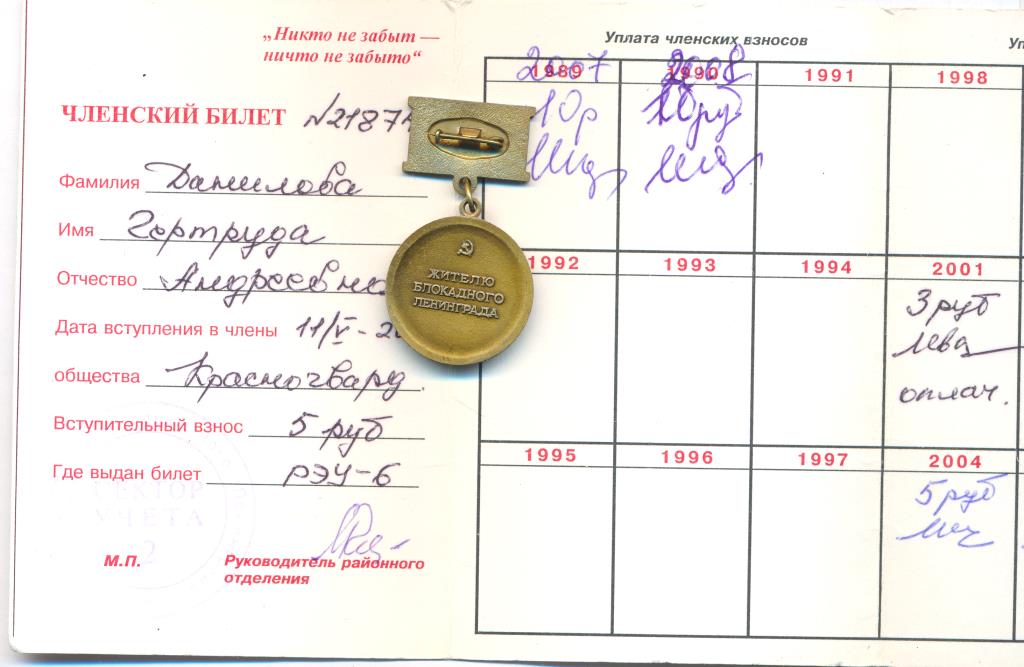 „Никто не забыт —
ничто не забыто“
ЧЛЕНСКИЙ БИЛЕТ №2187
Фамилия Данилова
Имя Гертруда
Отчество Андреевна
Дата вступления в члены 11/V-20
общества Красногвард.
Вступительный взнос 5 руб
Где выдан билет РЭУ-6
СЕКТОР
УЧЕТА
2
М.П. Руководитель районного
отделения
ЖИТЕЛЮ
БЛОКАДНОГО
ЛЕНИНГРАДА
Уплата членских взносов
1989 2007
10р
1990 2008
10руб
1991
1998
1992
1993
1994
2001
3 руб
оплач.
1995
1996
1997
2004
5 руб